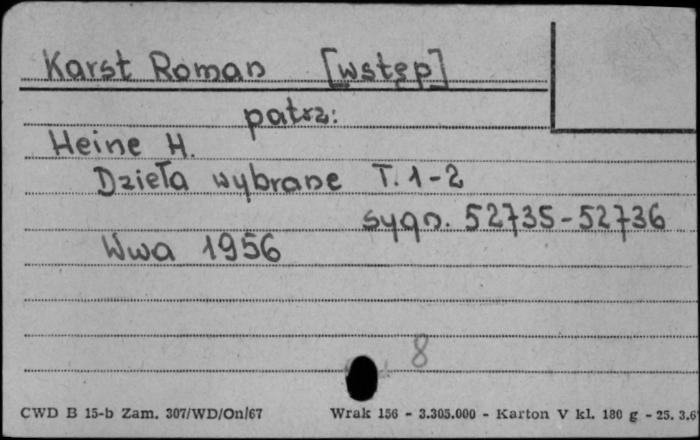 Karst Roman [wstęp]
patrz:
Heine H.
Dzieła wybrane T. 1-2
sygn. 52735-52736
Wwa 1956
8
CWD B 15-b Zam. 307/WD/On/67 Wrak 156 - 3.305.000 - Karton V kl. 180 g - 25. 3.6